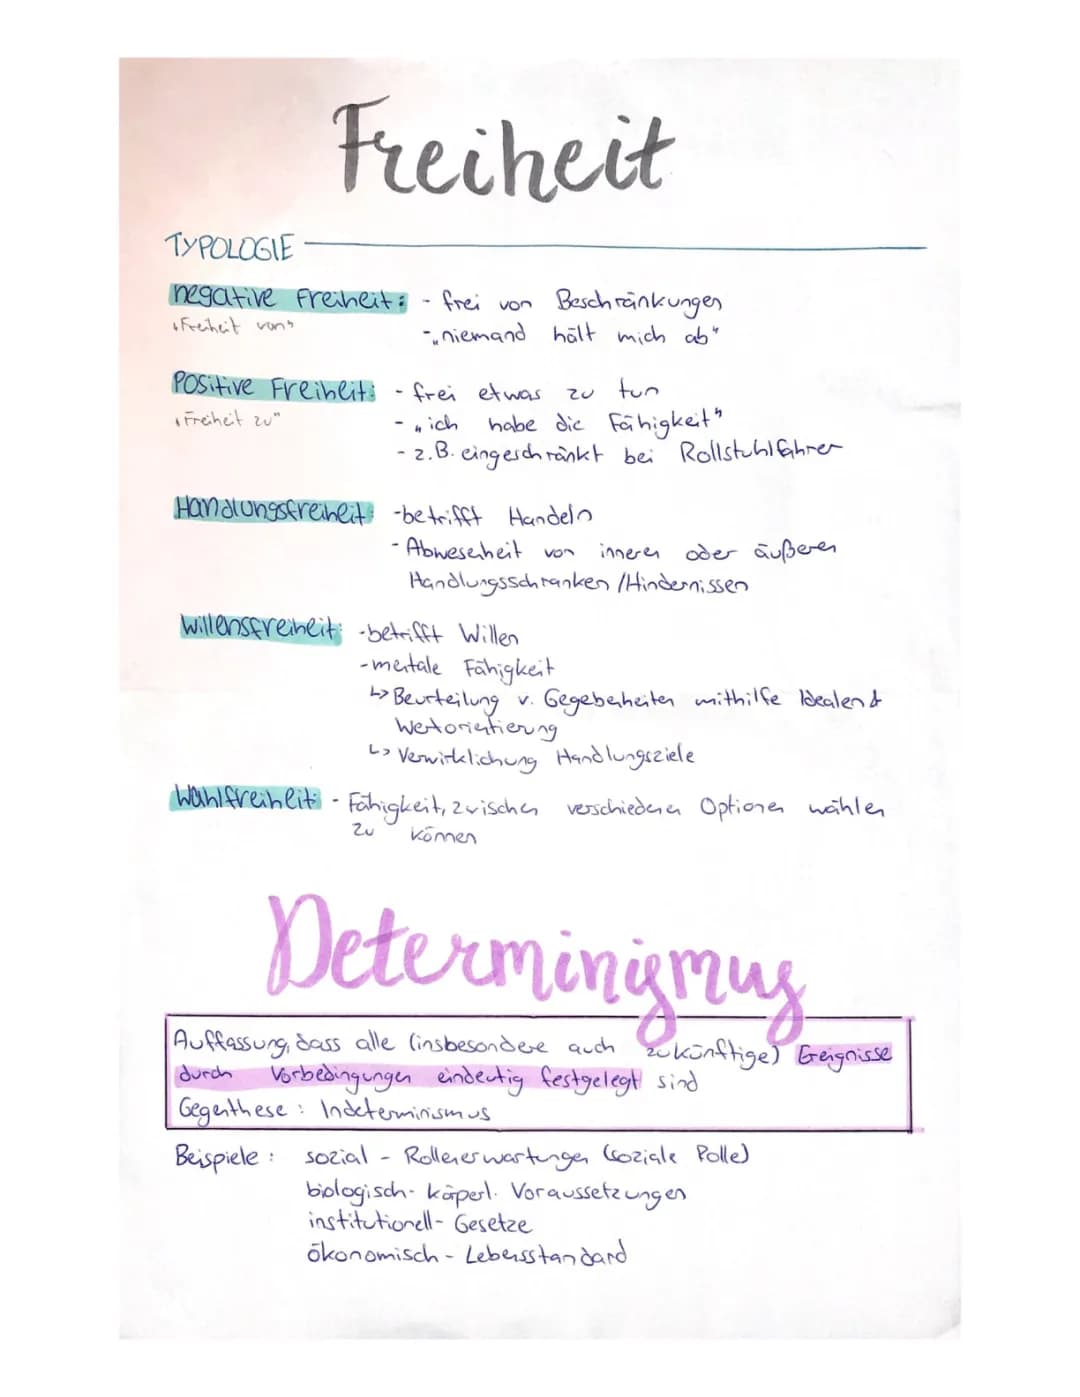 Freiheit
TYPOLOGIE
negative Freiheit: - frei von Beschränkungen
„Freiheit von“ - „niemand hält mich ab“
Positive Freiheit: - frei etwas zu tun
„Freiheit zu“ - „ich habe die Fähigkeit“
- z.B. eingeschränkt bei Rollstuhlfahrer
Handlungsfreiheit: - betrifft Handeln
- Abwesenheit von inneren oder äußeren
Handlungsschranken / Hindernissen
Willensfreiheit: - betrifft Willen
- mentale Fähigkeit
↳ Beurteilung v. Gegebenheiten mithilfe Idealen &
Wertorientierung
↳ Verwirklichung Handlungsziele
Wahlfreiheit: - Fähigkeit, zwischen verschiedenen Optionen wählen
zu können
Determinismus
Auffassung, dass alle (insbesondere auch zukünftige) Ereignisse
durch Vorbedingungen eindeutig festgelegt sind
Gegenthese: Indeterminismus
Beispiele: sozial - Rollenerwartungen (soziale Rolle)
biologisch - körperl. Voraussetzungen
institutionell - Gesetze
ökonomisch - Lebensstandard